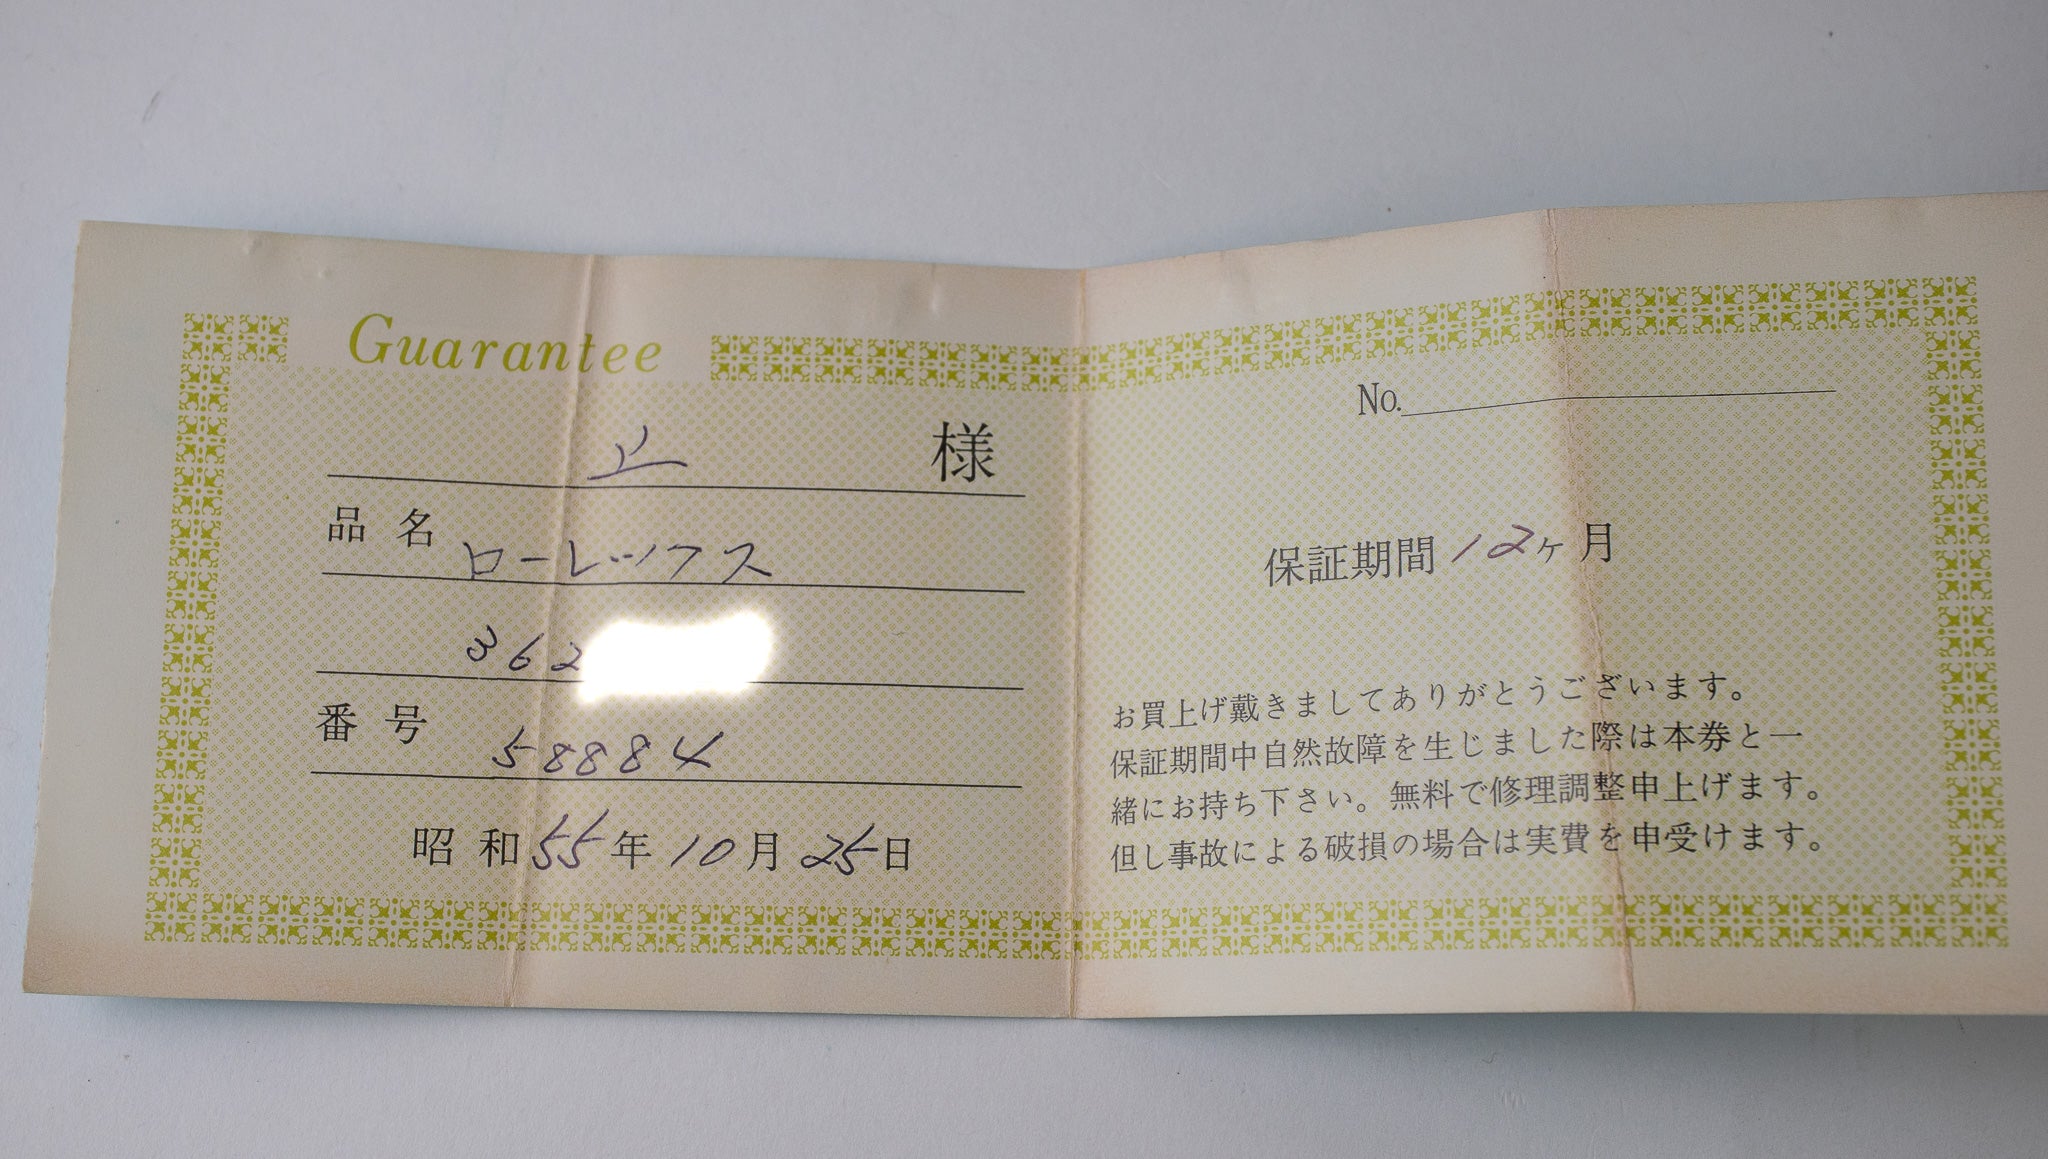 Guarantee
上 様
品名 ローレックス
362
番号 58884
昭和55年10月25日
No.
保証期間12ヶ月
お買上げ戴きましてありがとうございます。
保証期間中自然故障を生じました際は本券と一
緒にお持ち下さい。無料で修理調整申上げます。
但し事故による破損の場合は実費を申受けます。